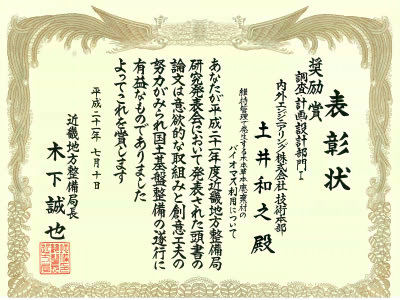 表彰状
奨励賞
調査・計画・設計部門Ⅰ
内外エンジニアリング株式会社 技術本部
土井和之殿
維持管理で発生する木本草本廃棄材の
バイオマス利用について
あなたが平成二十一年度近畿地方整備局
研究発表会において発表された頭書の
論文は意欲的な取組みと創意工夫の
努力がみられ国土基盤整備の遂行に
有益なものでありました
よってこれを賞します
平成二十一年 七月十日
近畿地方整備局長
木下誠也